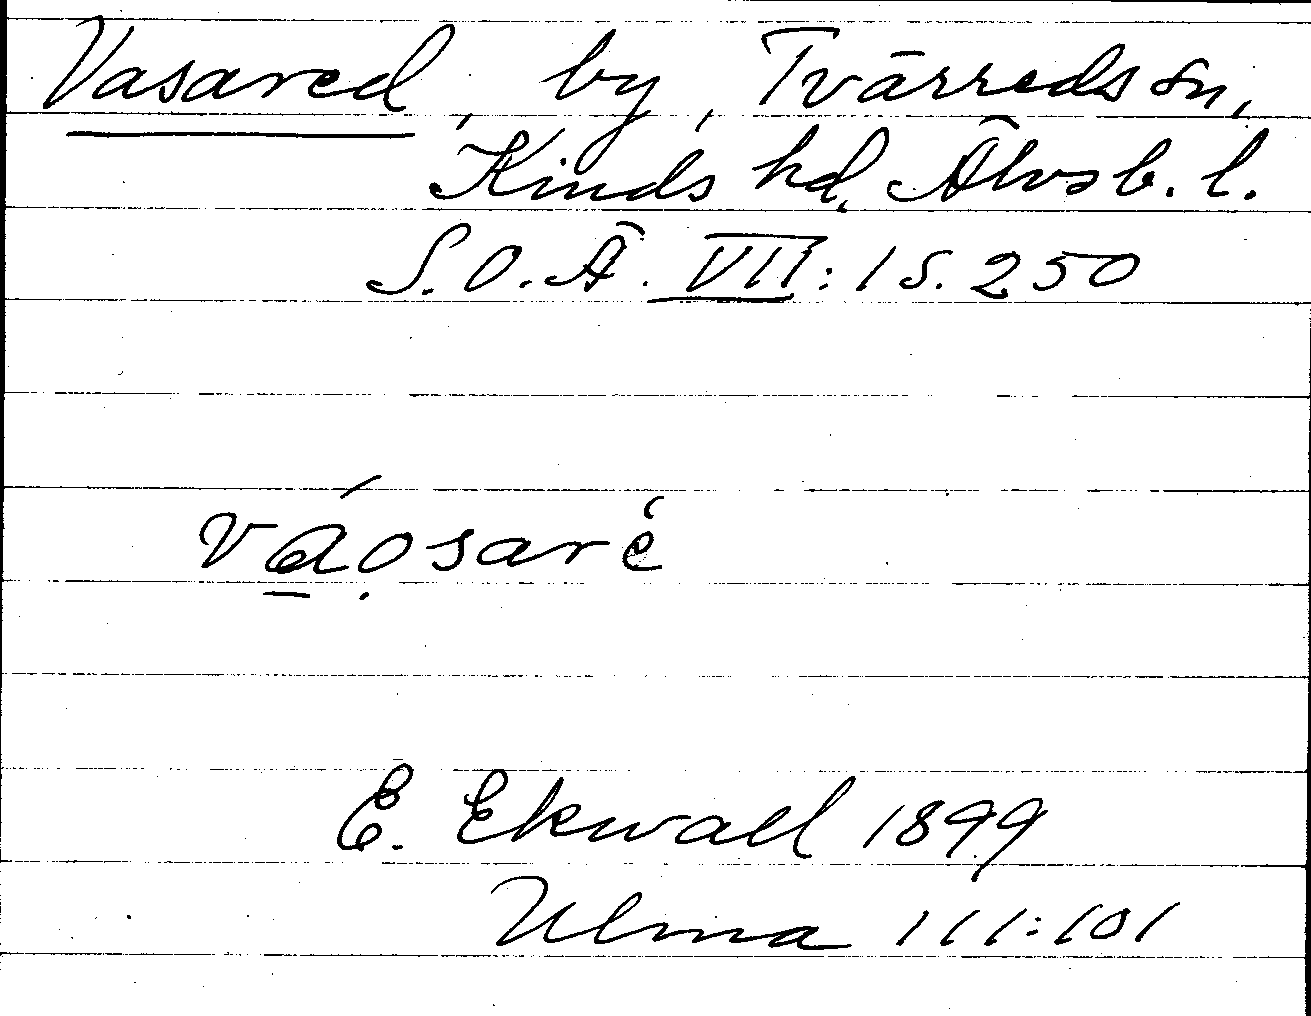 Vasared, by, Tvärreds sn,
Kinds hd, Älvsb. l.
S.O.Ä. VII:1 S. 250
váọsarè
E. Ekwall 1899
Ulma 111:101